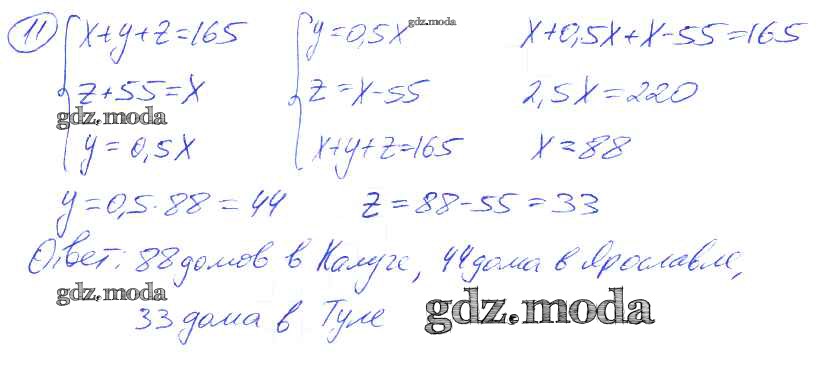 11 x+y+z=165 y=0,5x x+0,5x+x-55=165
gdz.moda
z+55=x z=x-55 2,5x=220
gdz.moda
y=0,5x x+y+z=165 x=88
y=0,5·88=44 z=88-55=33
Ответ: 88 домов в Калуге, 44 дома в Ярославле,
gdz.moda
33 дома в Туле
gdz.moda